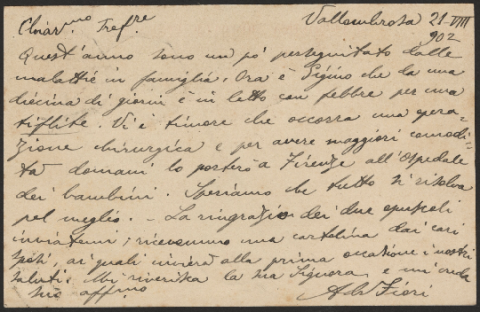 Chiar.mo Prof.re Vallombrosa 21-VIII
902
Quest'anno sono un pó perseguitato dalle
malattie in famiglia. Ora è Gigino che da una
diecina di giorni è in letto con febbre per una
tiflite. Vi è timore che occorra una opera-
zione chirurgica e per avere maggiori comodi-
tà domani lo porterò a Firenze all'Ospedale
dei bambini. Speriamo che tutto si risolva
pel meglio. - La ringrazio dei due opuscoli
inviatemi; ricevemmo una cartolina dai cari
sposi, ai quali invierà alla prima occasione i nostri
saluti. Mi riverisca la sua Signora, e mi creda
suo aff.mo
A. Fiori